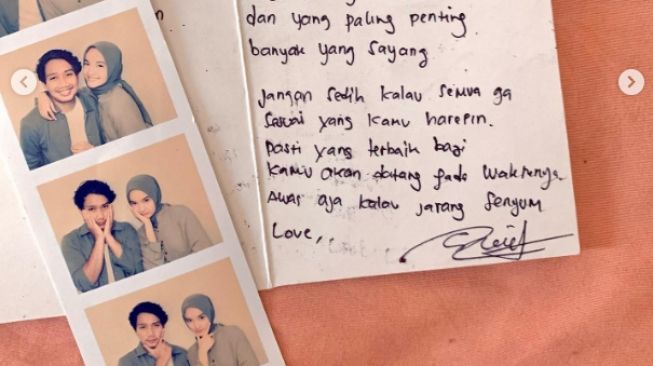 dan yang paling penting
banyak yang sayang
Jangan sedih kalau semua ga
sesuai yang kamu harepin.
pasti yang terbaik bagi
kamu akan datang pada waktunya
Awas aja kalau jarang senyum
Love,,